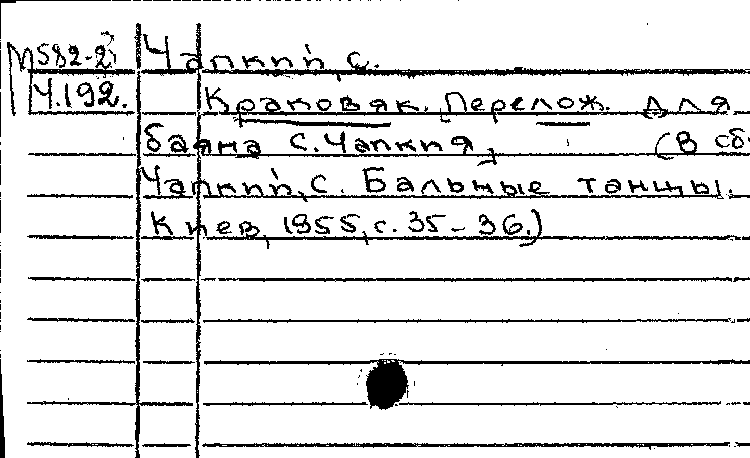 М582-2 Чапкий, С.
Ч.192. Краковяк. Перелож. для
баяна С. Чапкия, (В сб.
Чапкий, С. Бальные танцы.
Киев, 1955, с. 35-36.)